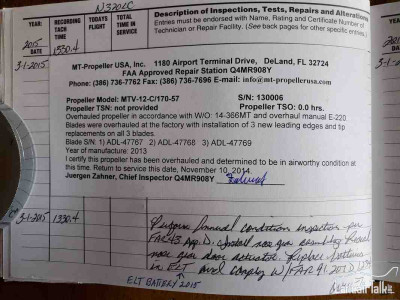 N320LC
2015
YEAR
DATE
RECORDING
TACH
TIME
TODAYS
FLIGHT
TOTAL
TIME IN
SERVICE
Description of Inspections, Tests, Repairs and Alterations
Entries must be endorsed with Name, Rating and Certificate Number of
Technician or Repair Facility. (See back pages for other specific entries.)
3-1-2015 1330.4
MT-Propeller USA, Inc. 1180 Airport Terminal Drive, DeLand, FL 32724
FAA Approved Repair Station Q4MR908Y
Phone: (386) 736-7762 Fax: (386) 736-7696 E-mail: info@mt-propellerusa.com
Propeller Model: MTV-12-C/170-57 S/N: 130006
Propeller TSN: not provided Propeller TSO: 0.0 hrs.
Overhauled propeller in accordance with W/O: 14-366MT and overhaul manual E-220
Blades were overhauled at the factory with installation of 3 new leading edges and tip
replacements on all 3 blades.
Blade S/N: 1) ADL-47767 2) ADL-47768 3) ADL-47769
Year of manufacture: 2013
I certify this propeller has been overhauled and determined to be in airworthy condition at
this time. Return to service this date, November 10, 2014
Juergen Zahner, Chief Inspector Q4MR908Y
3-1-2015 1330.4
annual condition inspection per
FAR 43 App. D. Install nose gear assembly
nose gear door actuator. Replace batteries
in ELT and comply w/FAR 91.207 D
ELT BATTERY 2015